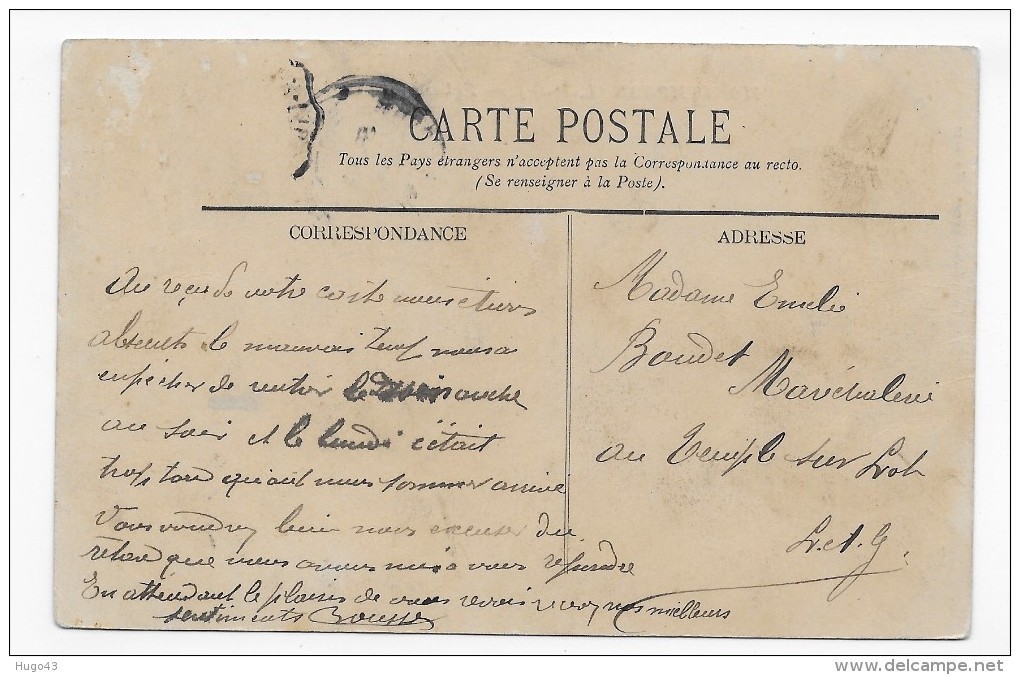 CARTE POSTALE
Tous les Pays étrangers n'acceptent pas la Correspondance au recto.
(Se renseigner à la Poste).
CORRESPONDANCE
Au reçu de votre carte nous étions
absents le mauvais temps nous a
enpecher de rentrer le dimanche
au soir et le lundi c'était
trop tard qu'ant nous sommes arrivé
Vous voudrez bien nous excuser du
retard que nous avons mis à vous repondre
En attendant le plaisir de vous revoir recevez nos meilleurs
sentiments
ADRESSE
Madame Emelie
Boudet
Maréchalerie
au Temple sur Lot
L. et. G.
Hugo43
www.delcampe.net